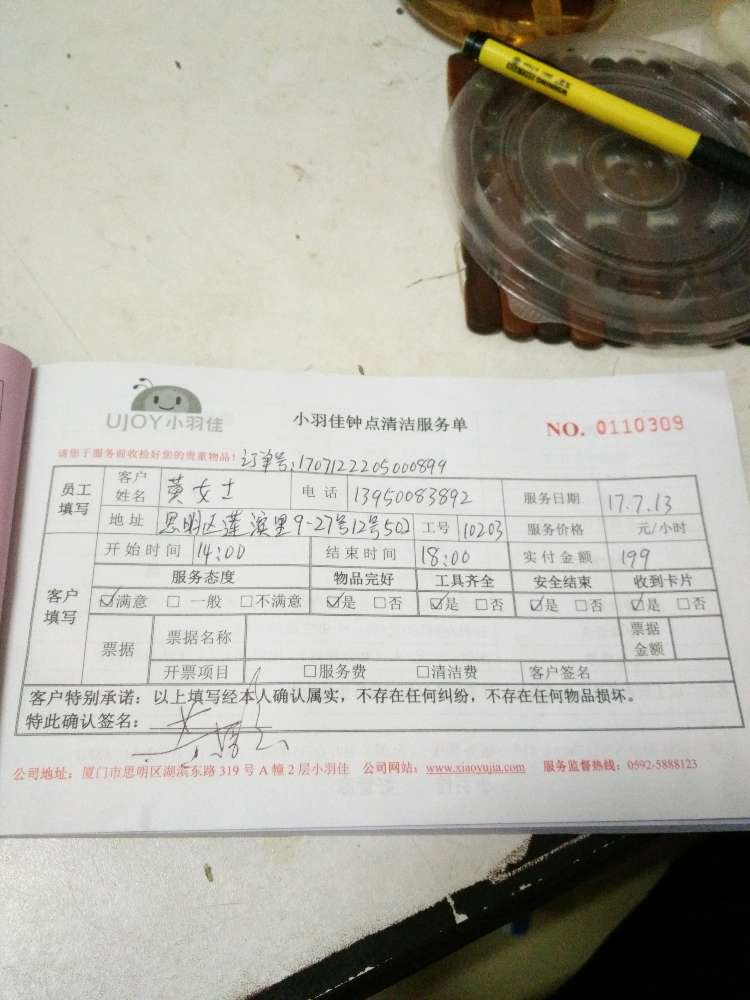 UJOY小羽佳
小羽佳钟点清洁服务单
NO. 0110309
请您于服务前收检好您的贵重物品！
订单号:1707122205000899
员工填写 客户姓名 黄女士 电话 13950083892 服务日期 17.7.13
地址 思明区莲滨里9-27号12号502 工号 10203 服务价格 元/小时
客户填写 开始时间 14:00 结束时间 18:00 实付金额 199
服务态度 物品完好 工具齐全 安全结束 收到卡片
☑满意 □一般 □不满意 ☑是 □否 ☑是 □否 ☑是 □否 ☑是 □否
票据 票据名称 票据金额
开票项目 □服务费 □清洁费 客户签名
客户特别承诺：以上填写经本人确认属实，不存在任何纠纷，不存在任何物品损坏。
特此确认签名：
公司地址：厦门市思明区湖滨东路 319 号 A 幢 2 层小羽佳 公司网站：www.xiaoyujia.com 服务监督热线：0592-5888123